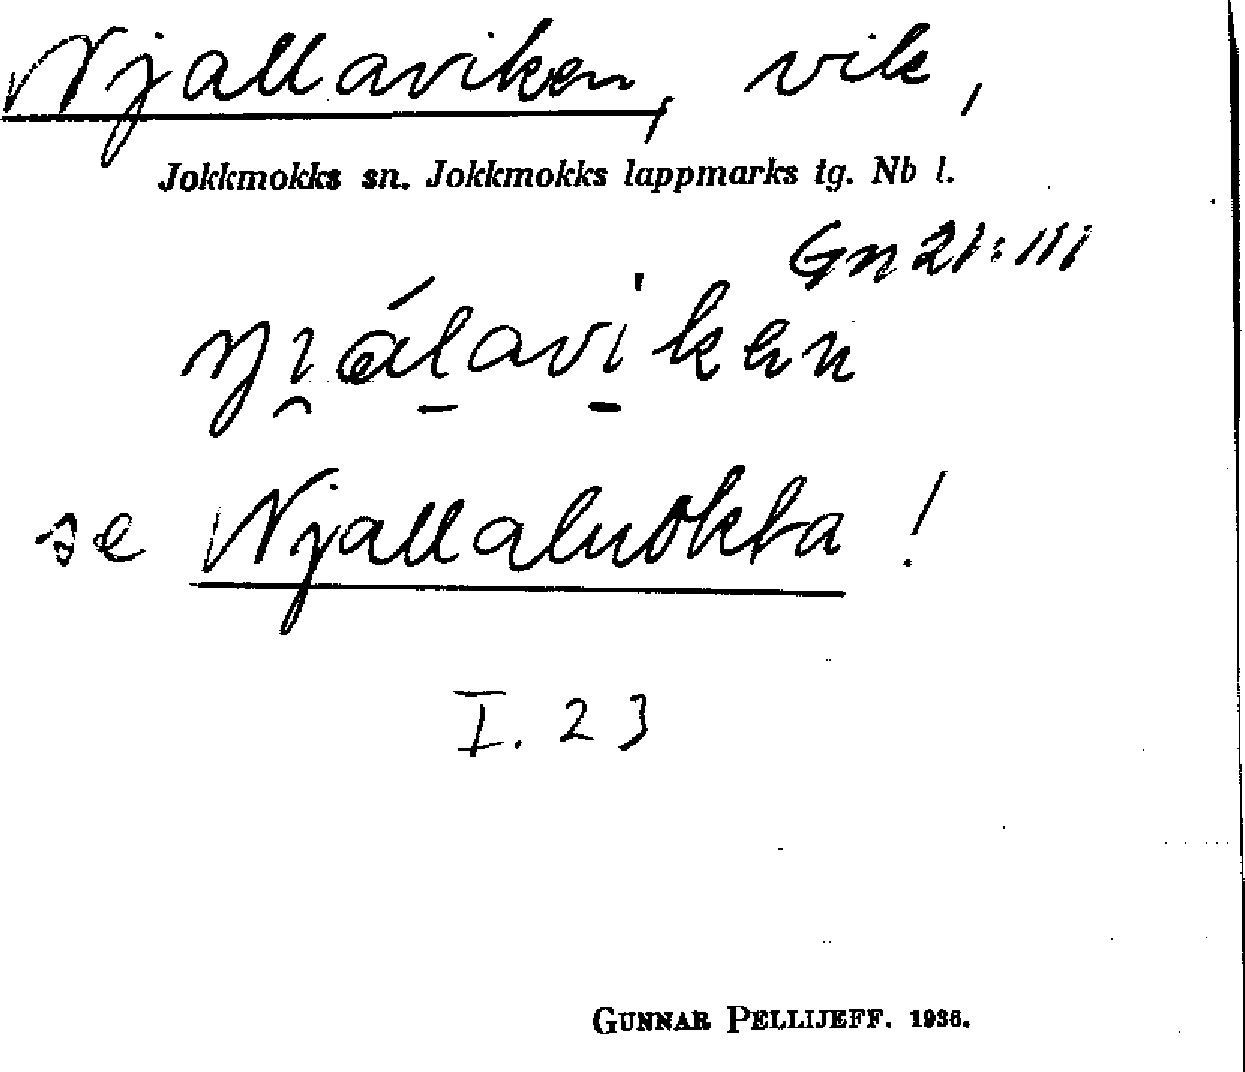 Njallaviken, vik,
Jokkmokks sn. Jokkmokks lappmarks tg. Nb l.
Gn 21:111
njálaviken
se Njallaluokta!
I. 23
GUNNAR PELLIJEFF. 1936.